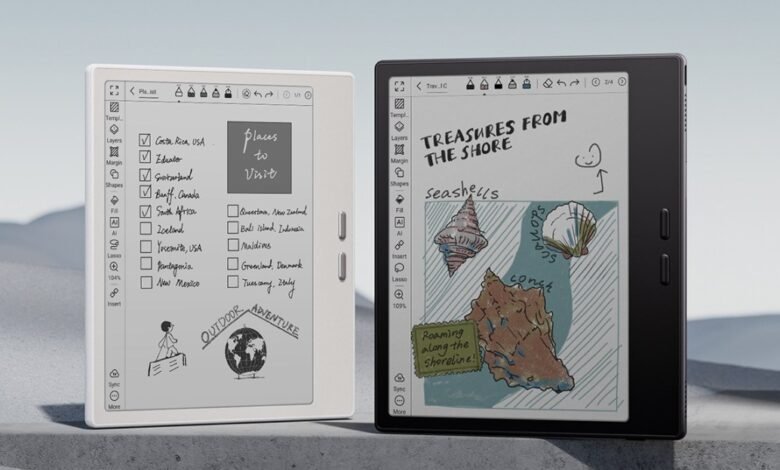 1/1
Templ...
Layers
Margin
Shapes
Fill
AI
AI
Lasso
104%
Insert
Sync
More
Places
to
Visit
Costa Rica, USA
Switzerland
Banff, Canada
South Africa
Iceland
Yosemite, USA
Patagonia
New Mexico
Queenstown, New Zealand
Bali Island, Indonesia
Maldives
Greenland, Denmark
Tuscany, Italy
OUTDOOR ADVENTURE
2/4
Templ...
Layers
Margin
Shapes
Fill
AI
AI
Insert
Lasso
109%
Sync
More
TREASURES FROM
THE SHORE
seashells
SCALLOPS
conch
Roaming
along the
shoreline!